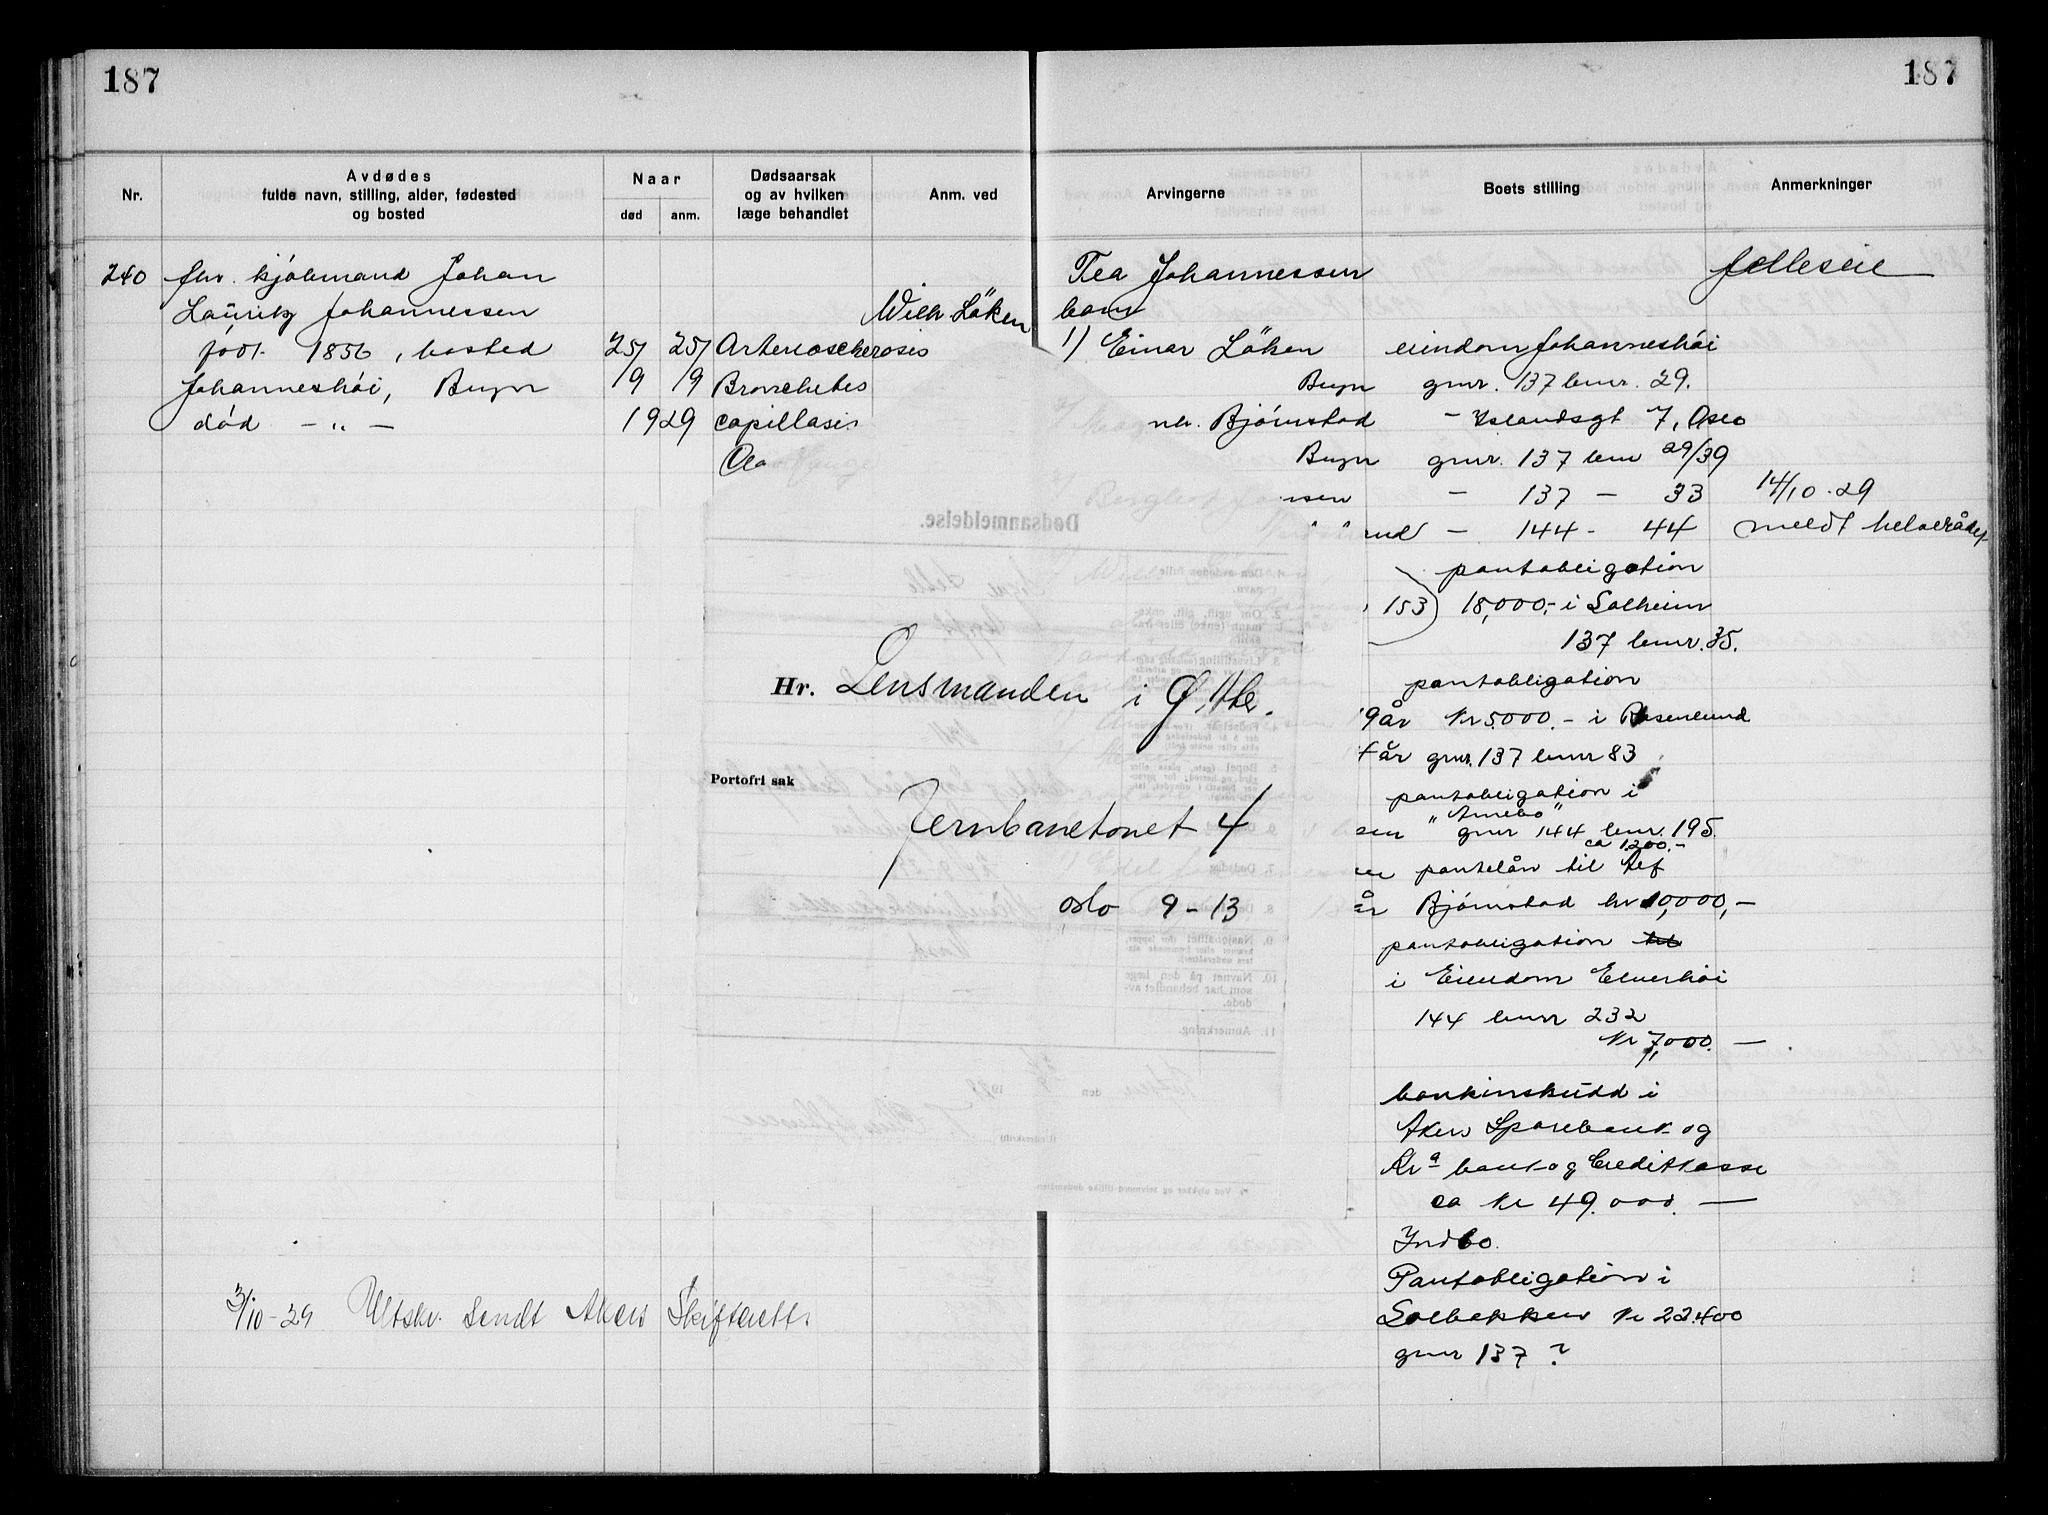 187
187
Nr.
Avdødes
fulde navn, stilling, alder, fødested
og bosted
Naar
død
anm.
Dødsaarsak
og av hvilken
læge behandlet
Anm. ved
Arvingerne
Boets stilling
Anmerkninger
240
fhv. kjøbmand Johan
Lauritz Johannessen
født 1856, bosted
Johanneshøi, Bryn
død - " -
25/9
25/9
1929
Arterioschlerosis
Bronchites
capillasis
Olav
Wilh Løken
Tea Johannessen
barn
1) Einar Løken
Bryn
nh. Bjørnstad
Bryn
eiendom Johanneshøi
gnr. 137 bnr. 29.
- Islandsgt 7, Oslo
gnr. 137 bnr 29/39
- 137 - 33
- 144 - 44
pantobligation
153) 18,000,- i Solheim
137 bnr. 35.
pantobligation
9 år Kr 5000.- i Rosenlund
år gnr. 137 bnr 83
pantobligation i
"Amebo"
sen gnr 144 bnr. 195.
ca 1200.-
pantelån til Alf
Bjørnstad kr 10,000,-
pantobligation til
i Eiendom Elverhøi
144 bnr 232
Kr 7,000. -
bankinskudd i
Akers Sparebank og
Kra bank og Creditkasse
ca Kr 49.000. -
Indbo.
Pantobligation i
Solbakken Kr 22.400
gnr 137 ?
felleseie
14/10.29
meldt helserådet
Dødsanmeldelse.
Hr. Lensmanden i Ø. Aker.
Portofri sak
Jernbanetorvet 4
Oslo 9-13
3/10-29 Utskr. Sendt Akers Skifterett.